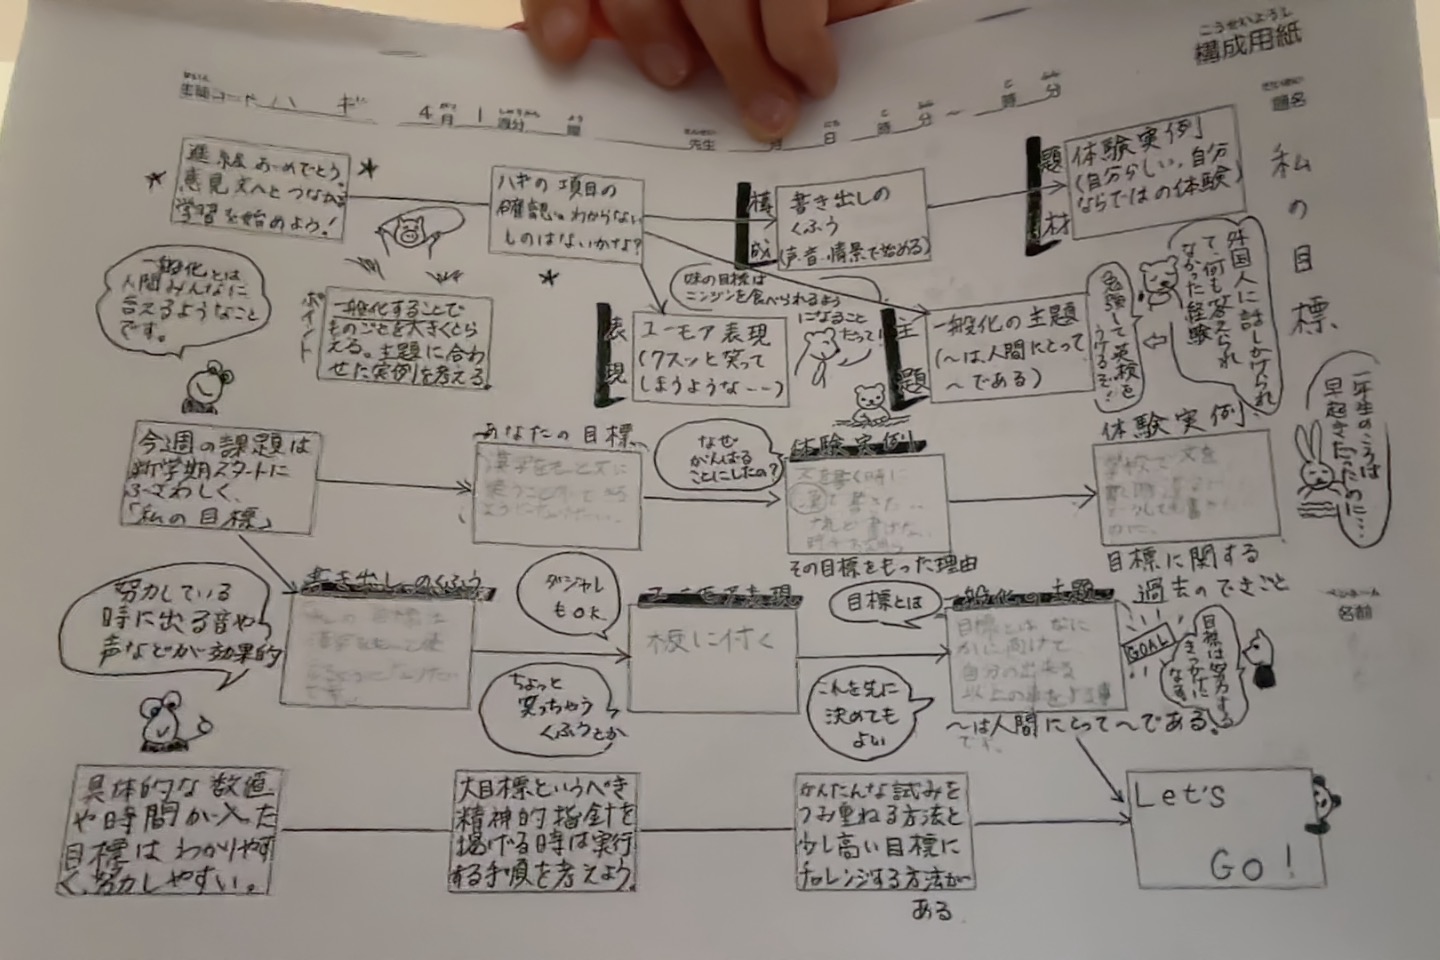 こうせいようし
構成用紙
生徒コード ハ ギ 4月 1週分 曜 先生 月 日 時 分 〜 時 分
題名
私の目標
進級おめでとう。
意見文へとつなかる
学習を始めよう!
ハギの項目の
確認。わからない
ものはないかな?
構成
書き出しの
くふう
(声、音、情景で始める)
題材
体験実例
(自分らしい、自分
ならではの体験)
一般化とは
人間みんなに
言えるようなこと
です。
ポイント
一般化することで
ものごとを大きくとら
える。主題に合わ
せた実例を考える。
妹の目標は
ニンジンを食べられるよう
になること
だって!
表現
ユーモア表現
(クスッと笑って
しまうような--)
主題
一般化の主題
(〜は、人間にとって
〜である)
外国人に話しかけられ
て、何も答えられ
なかった経験
勉強して英検を
うけるぞ!
一年生のころは
早起きだったのに…
今週の課題は
新学期スタートに
ふさわしく、
「私の目標」
あなたの目標
漢字をもっと文に
使うことができる
なぜ
がんばる
ことにしたの?
体験実例
文を書く時に
その目標をもった理由
体験実例
学校で文を
目標に関する
過去のできごと
努力している
時に出る音や
声などが効果的
書き出しのくふう
ダジャレ
もOK
ちょっと
笑っちゃう
くふうとか
ユーモア表現
板に付く
目標とは
これを先に
決めても
よい
一般化の主題
目標とは なに
かに向けて
自分の出来る
以上の事をする事
〜は人間にとって〜である。
です。
GOAL
目標は努力する
きっかけに
なる
名前
具体的な数値
や時間か入った
目標はわかりやす
く、努力しやすい。
大目標というべき
精神的指針を
掲げる時は実行
する手順を考えよう。
かんたんな試みを
つみ重ねる方法と
少し高い目標に
チャレンジする方法が
ある
Let's
GO!